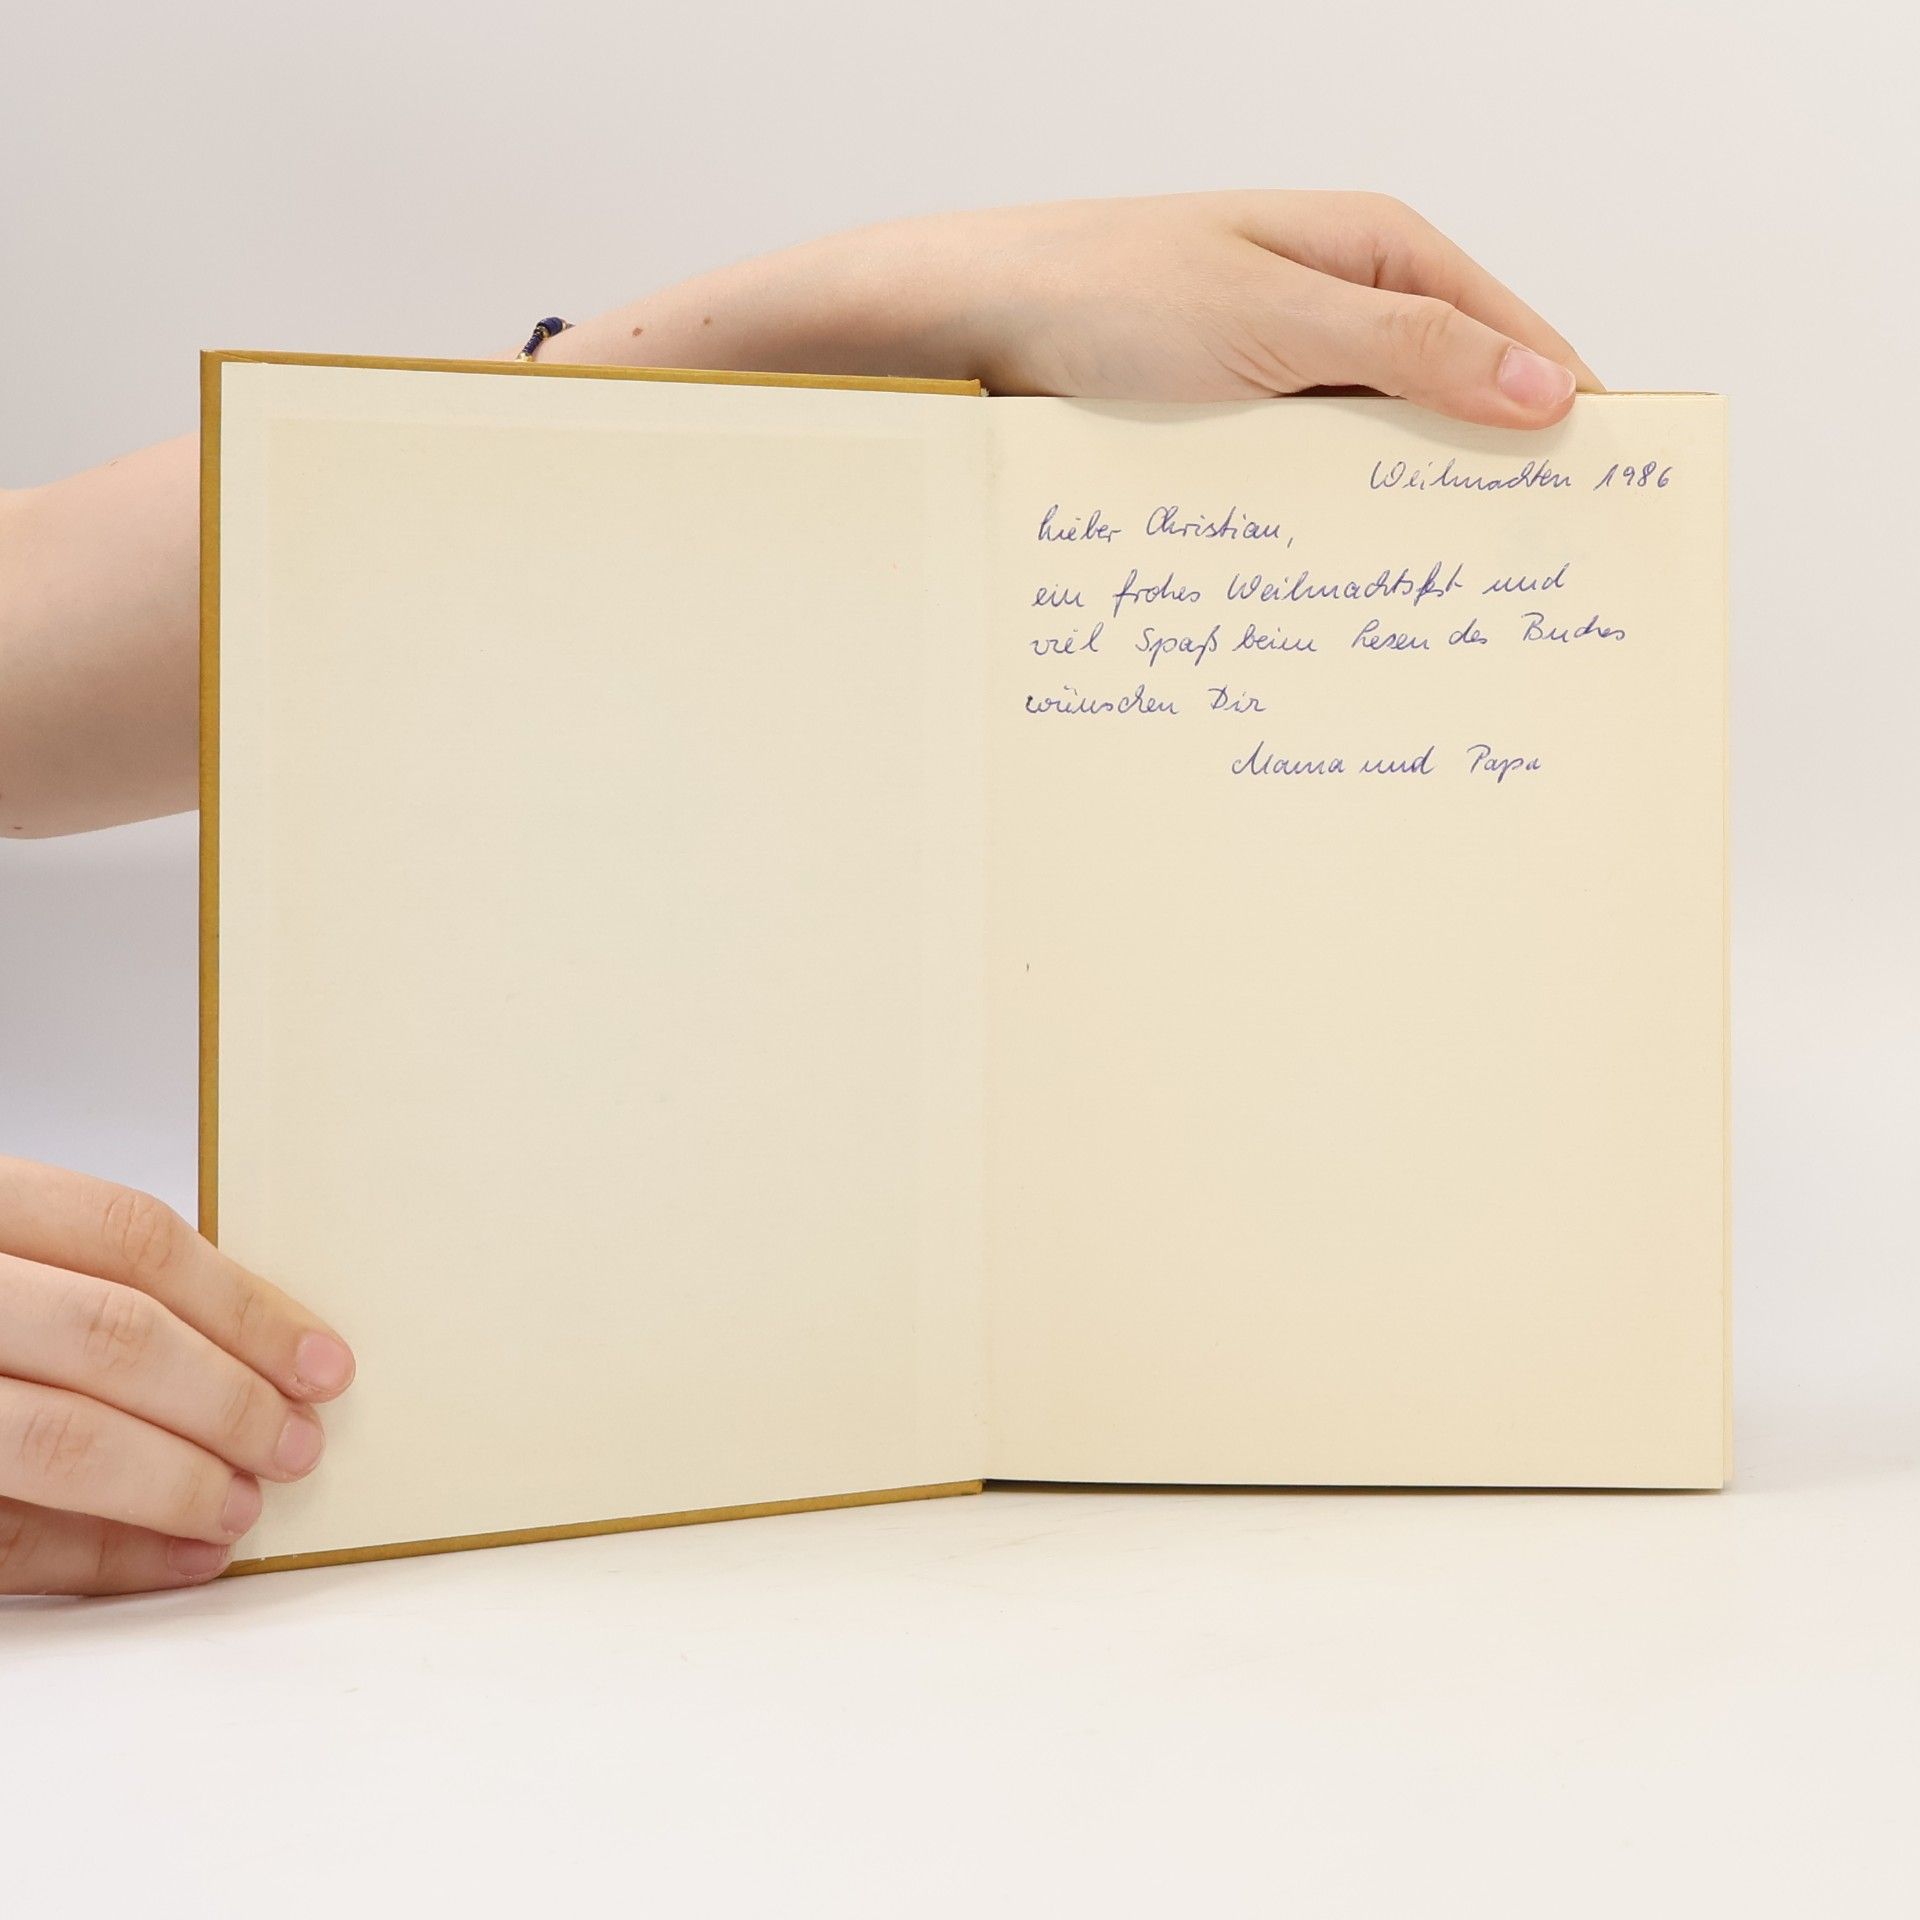 Weihnachten 1986
Lieber Christian,
ein frohes Weihnachtsfest und
viel Spaß beim Lesen des Buches
wünschen Dir
Mama und Papa